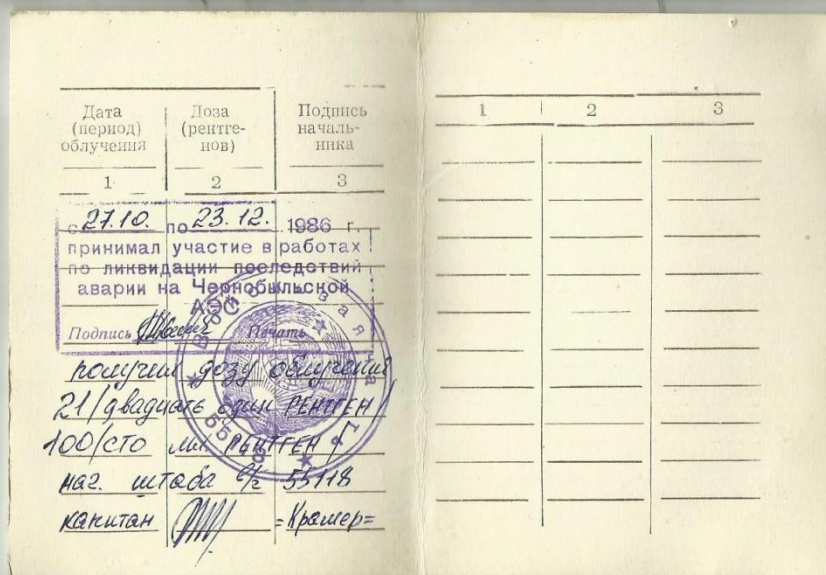 Дата (период) облучения
Доза (рентге-нов)
Подпись началь-ника
1 2 3
с 27.10. по 23.12. 1986 г.
принимал участие в работах
по ликвидации последствий
аварии на Чернобыльской
АЭС
Подпись Печать
получил дозу облучения
21/двадцать один РЕНТГЕН/
100/сто РЕНТГЕН/
нач. штаба в/ч 55118
капитан =Крамер=
Войсковая часть
1 2 3